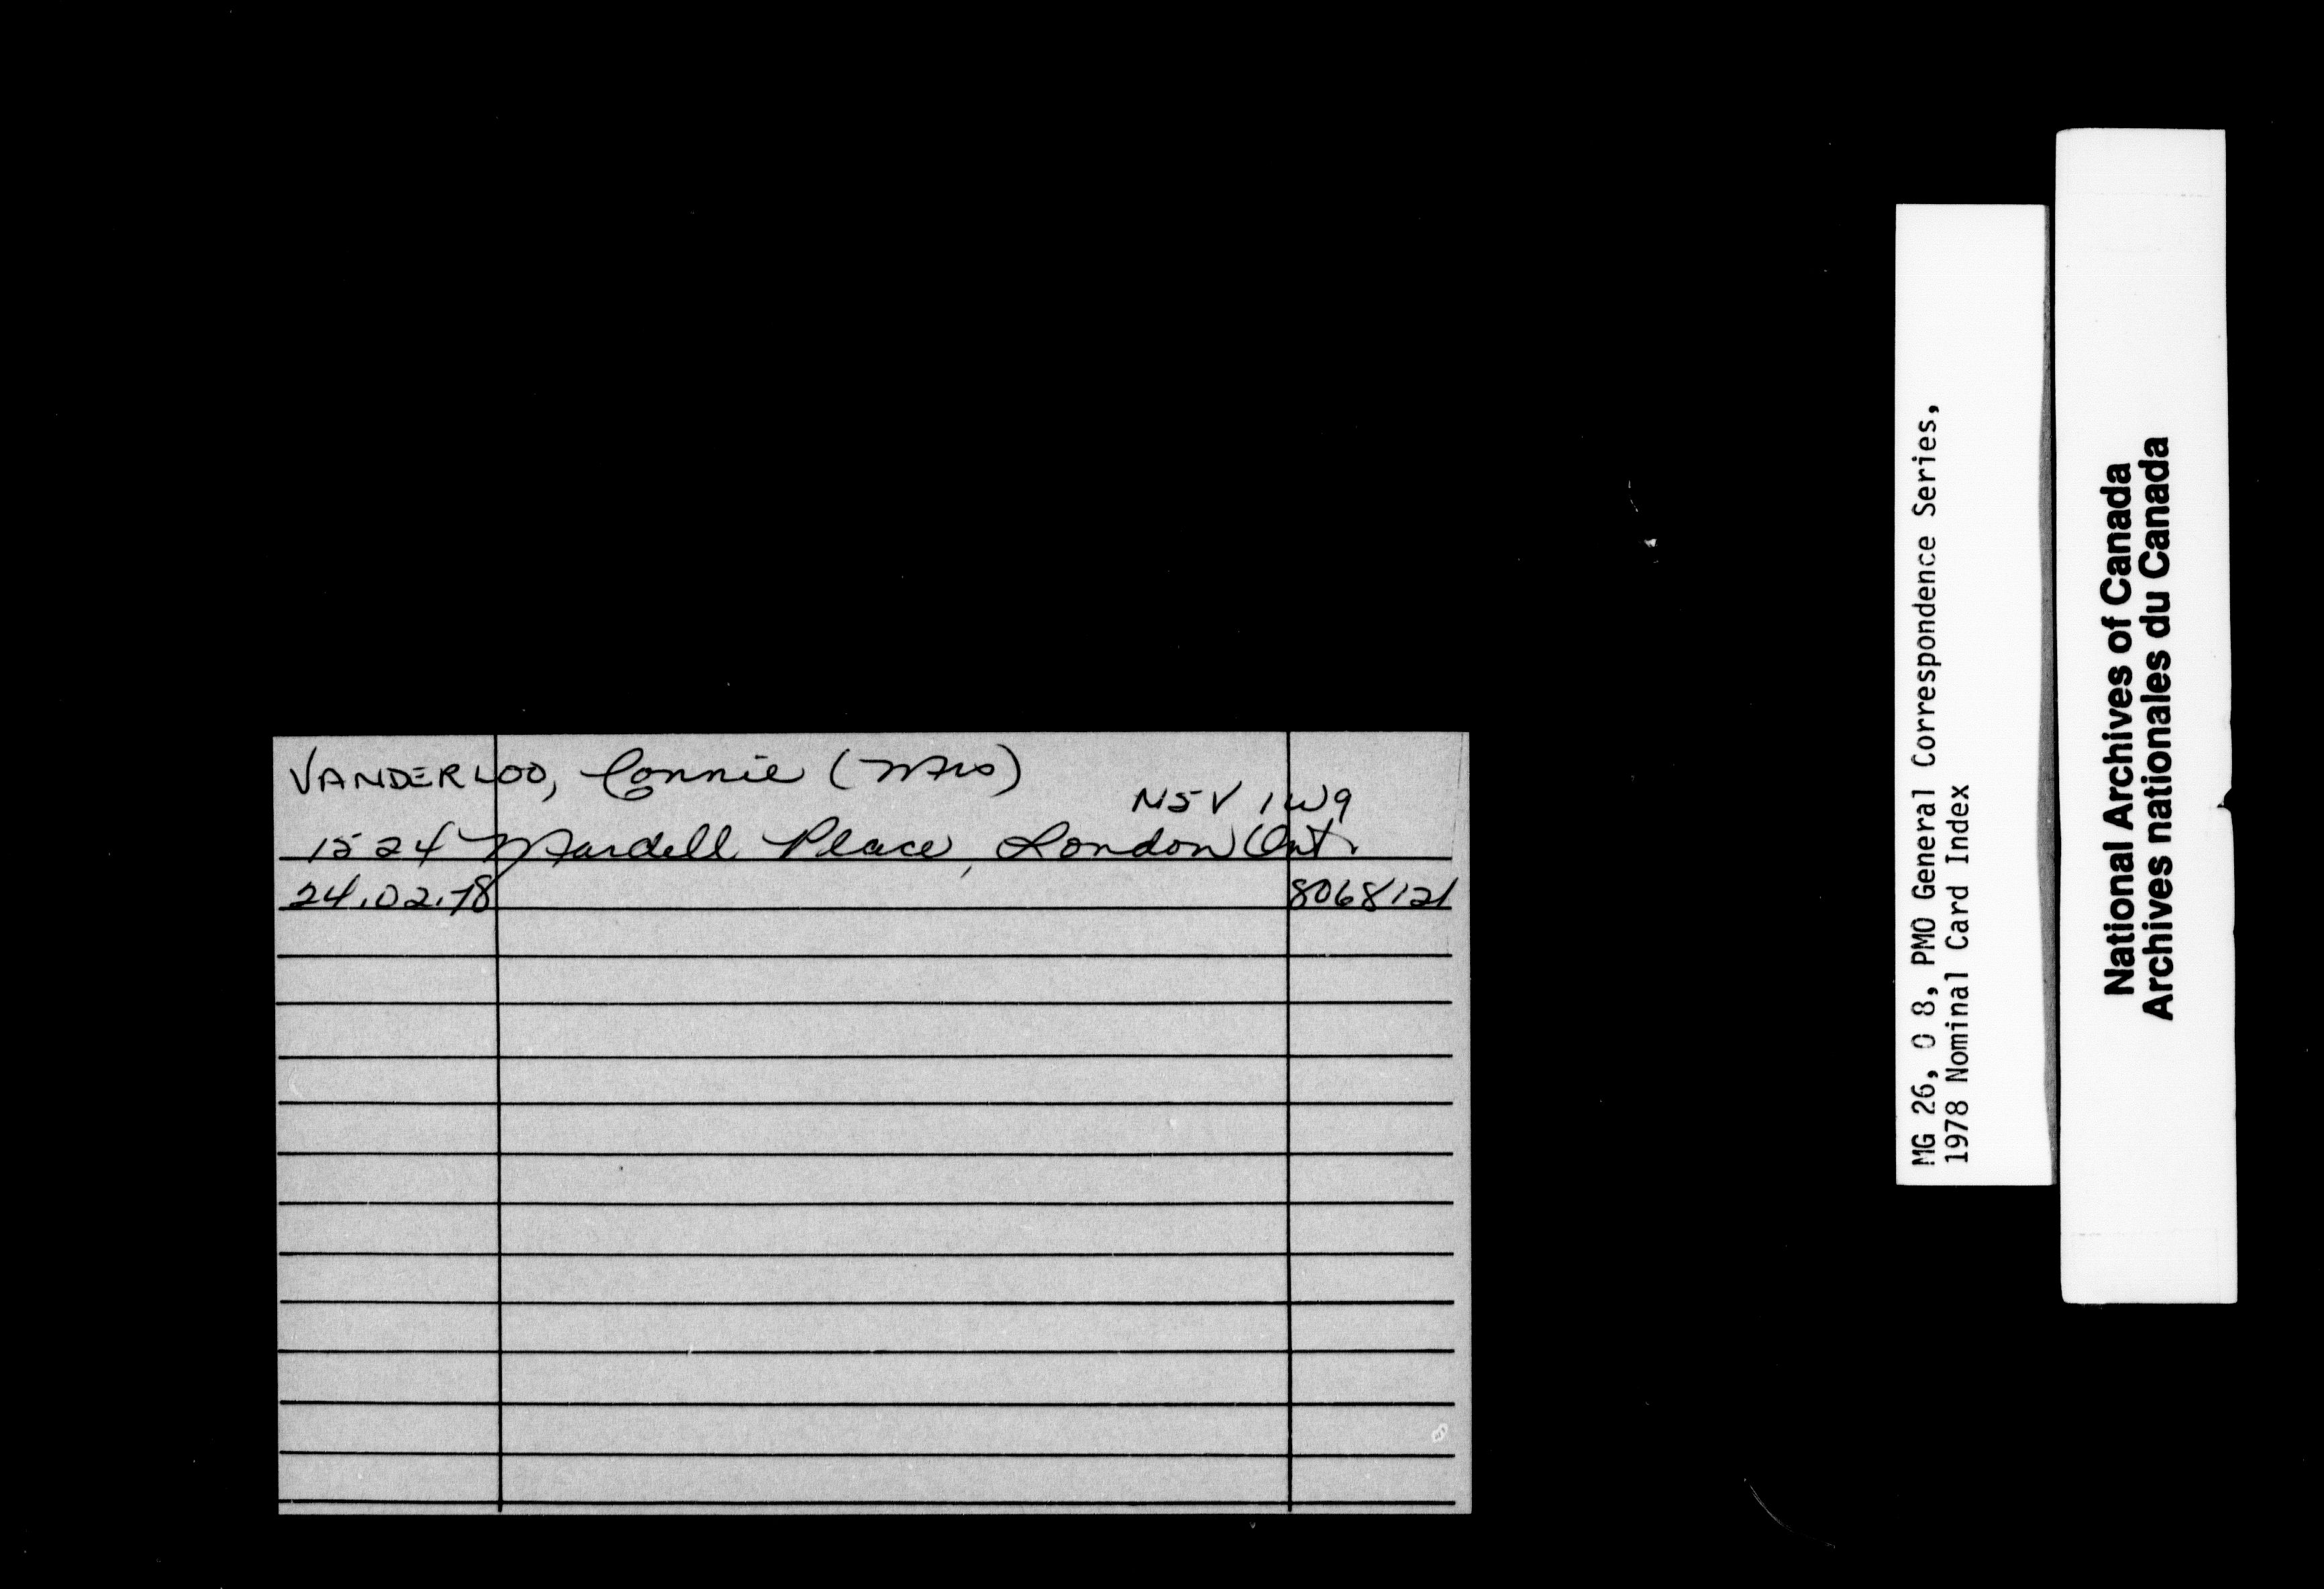 VANDERLOO, Connie (Mrs)
N5V 1W9
1524 Mardell Place, London Ont.
24.02.78 8068121
MG 26, O 8, PMO General Correspondence Series,
1978 Nominal Card Index
National Archives of Canada
Archives nationales du Canada